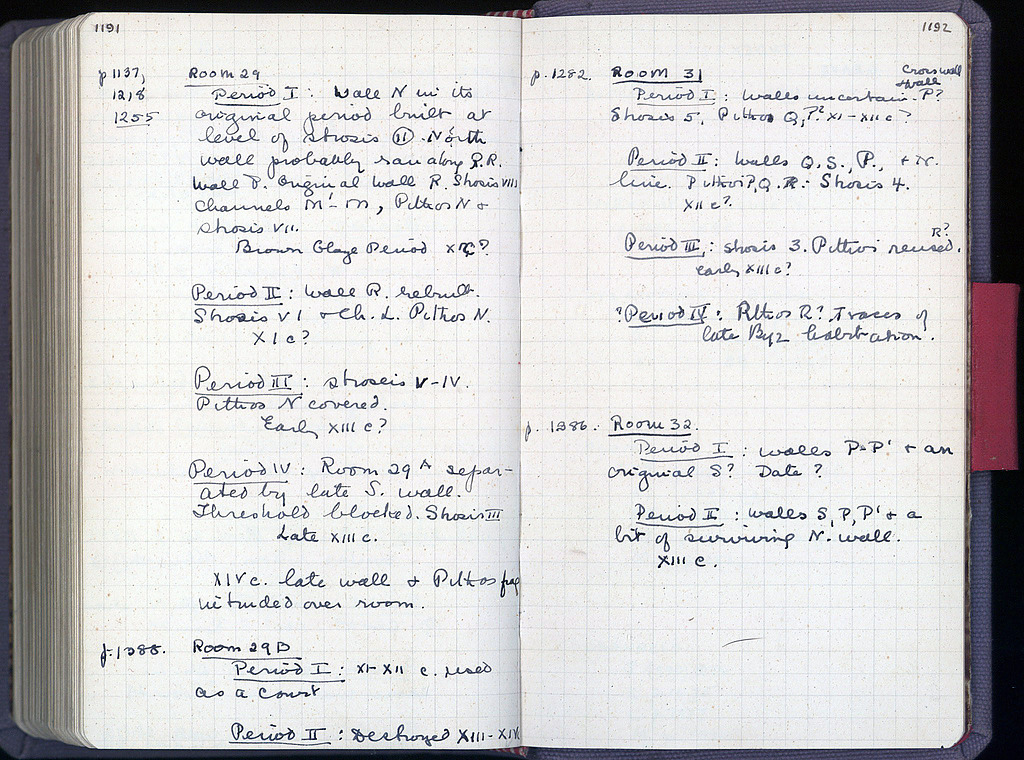 1191
p 1137,
1218
1255
Room 29
Period I : Wall N in its
original period built at
level of strosis (II). North
wall probably ran along R.R.
Wall P. Original Wall R. Strosis VIII
Channels M'-M, Pithos N +
strosis VII.
Brown Glaze Period
Period II : Wall R. rebuilt.
Strosis VI + Ch. L. Pithos N.
XI c?
Period III : stroseis V-IV.
Pithos N covered.
Early XIII c?
Period IV : Room 29 A separ-
ated by late S. wall.
Threshold blocked. Strosis III
Late XIII c.
XIV c. late wall + Pithos frag
intruded over room.
p. 1388.
Room 29B
Period I : XI-XII c. used
as a court
Period II : Destroyed XIII-XIV
1192
p. 1282.
Room 31
Cross wall
+ wall
Period I : walls uncertain. P?
Strosis 5, Pithos Q, P? XI-XII c?
Period II : Walls Q. S., P., + N.
line. Pithoi P, Q. R. : Strosis 4.
XII c?
Period III : strosis 3. Pithoi reused.
R?
early XIII c?
?Period IV : Pithos R? Traces of
late Byz habitation.
p. 1386.
Room 32.
Period I : walls P-P' + an
original S? Date ?
Period II : walls S, P, P' + a
bit of surviving N. wall.
XIII c.